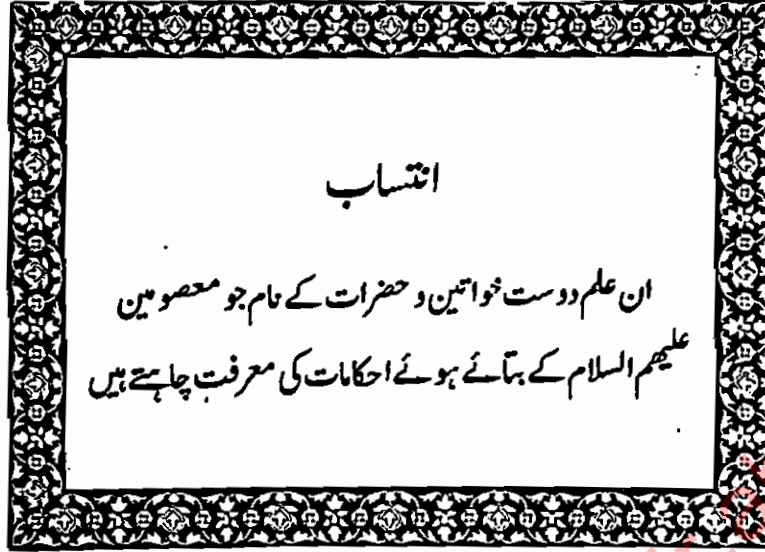 انتساب
ان علم دوست خواتین و حضرات کے نام جو معصومین
علیھم السلام کے بتائے ہوئے احکامات کی معرفت چاہتے ہیں